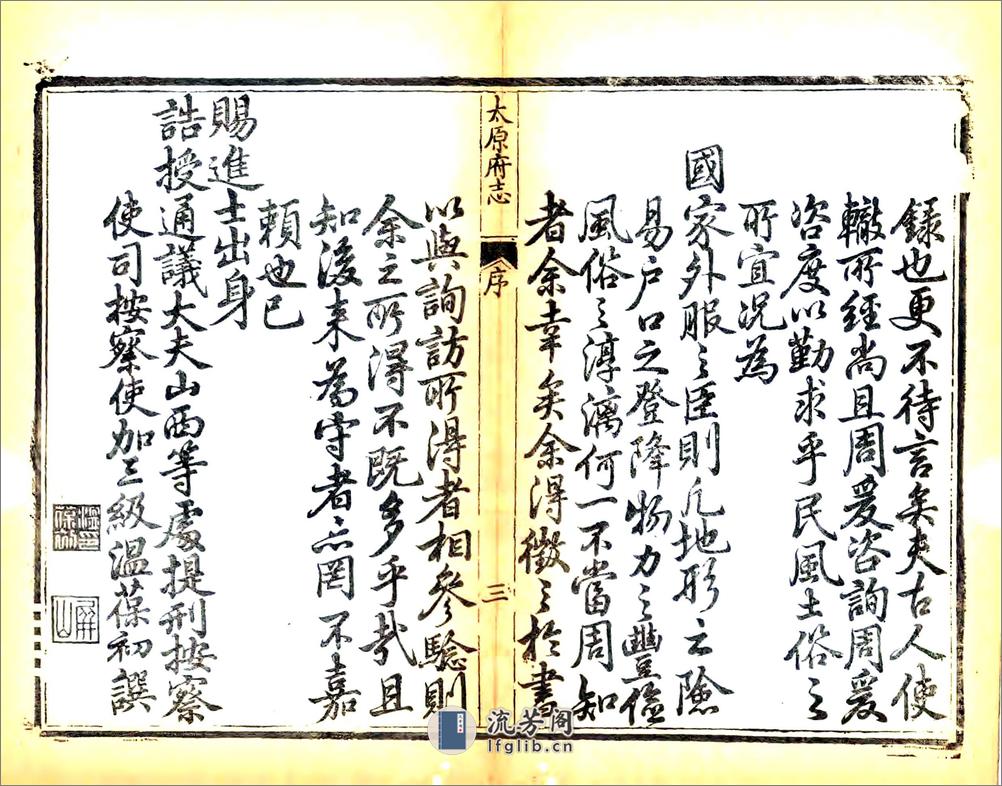 録也更不待言矣夫古人使
轍所經尚且周爰咨詢周爰
咨度以勤求乎民風土俗之
所宜况為
國家外服之臣則凡地形之險
易户口之登降物力之豐儉
風俗之淳漓何一不當周知
者余幸矣余得徵之於書
太原府志
序
三
以與詢訪所得者相參驗則
余之所得不既多乎哉且
知後来為守者亦罔不嘉
賴也已
賜進士出身
誥授通議大夫山西等處提刑按察
使司按察使加三級温葆初譔
流芳阁
lfglib.cn